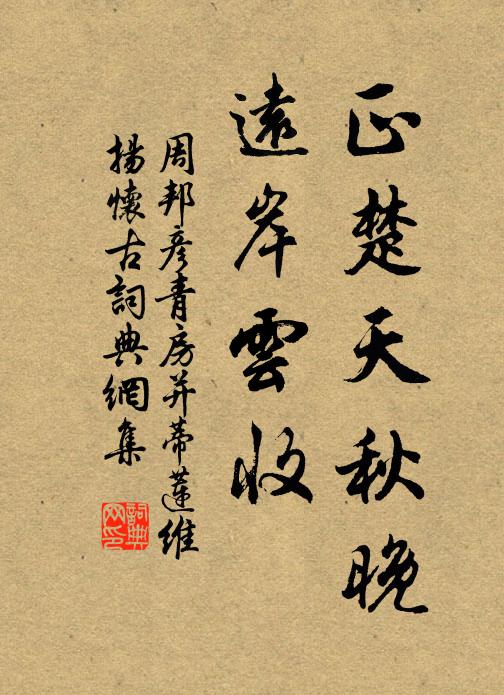 正楚天秋晚
遠岸雲收
周邦彥青房并蒂蓮維
揚懷古詞典網集
詞典
网印